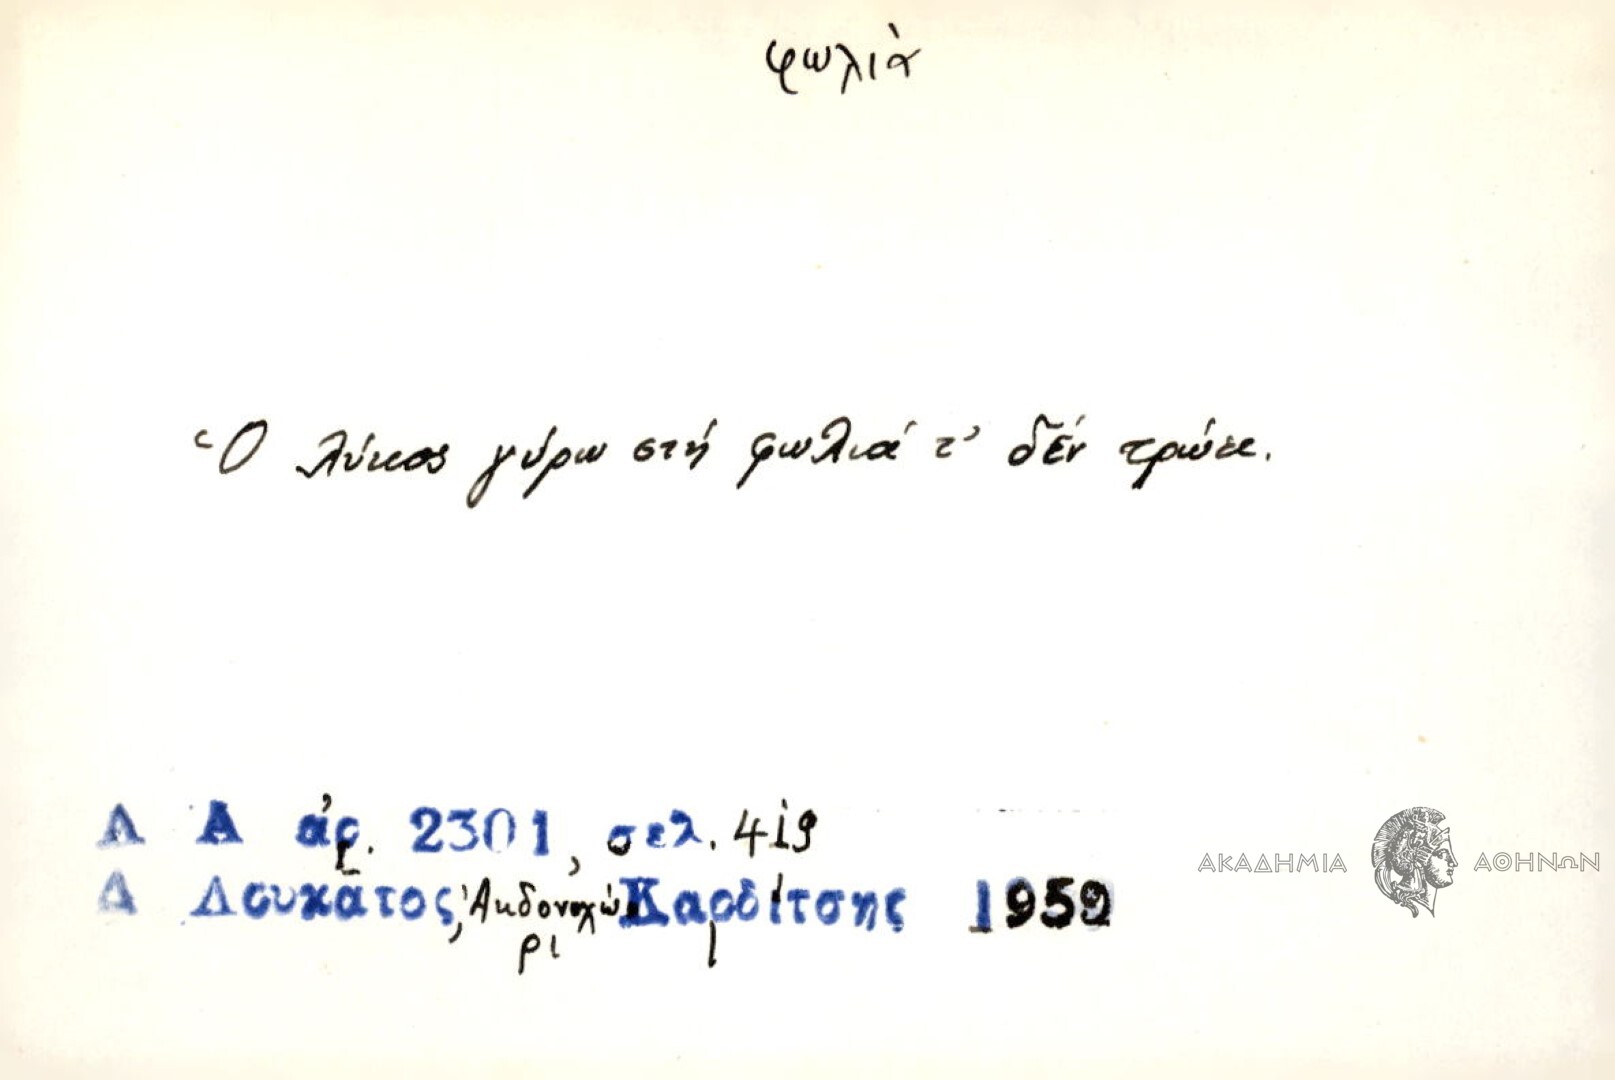 φωλιὰ
Ὁ λύκος γύρω στή φωλιά τ' δέν τρώει.
Λ Α ἀρ. 2301, σελ. 419
Δ Λουκάτος, Ἀηδονοχώρι Καρδίτσης 1959
ΑΚΑΔΗΜΙΑ ΑΘΗΝΩΝ